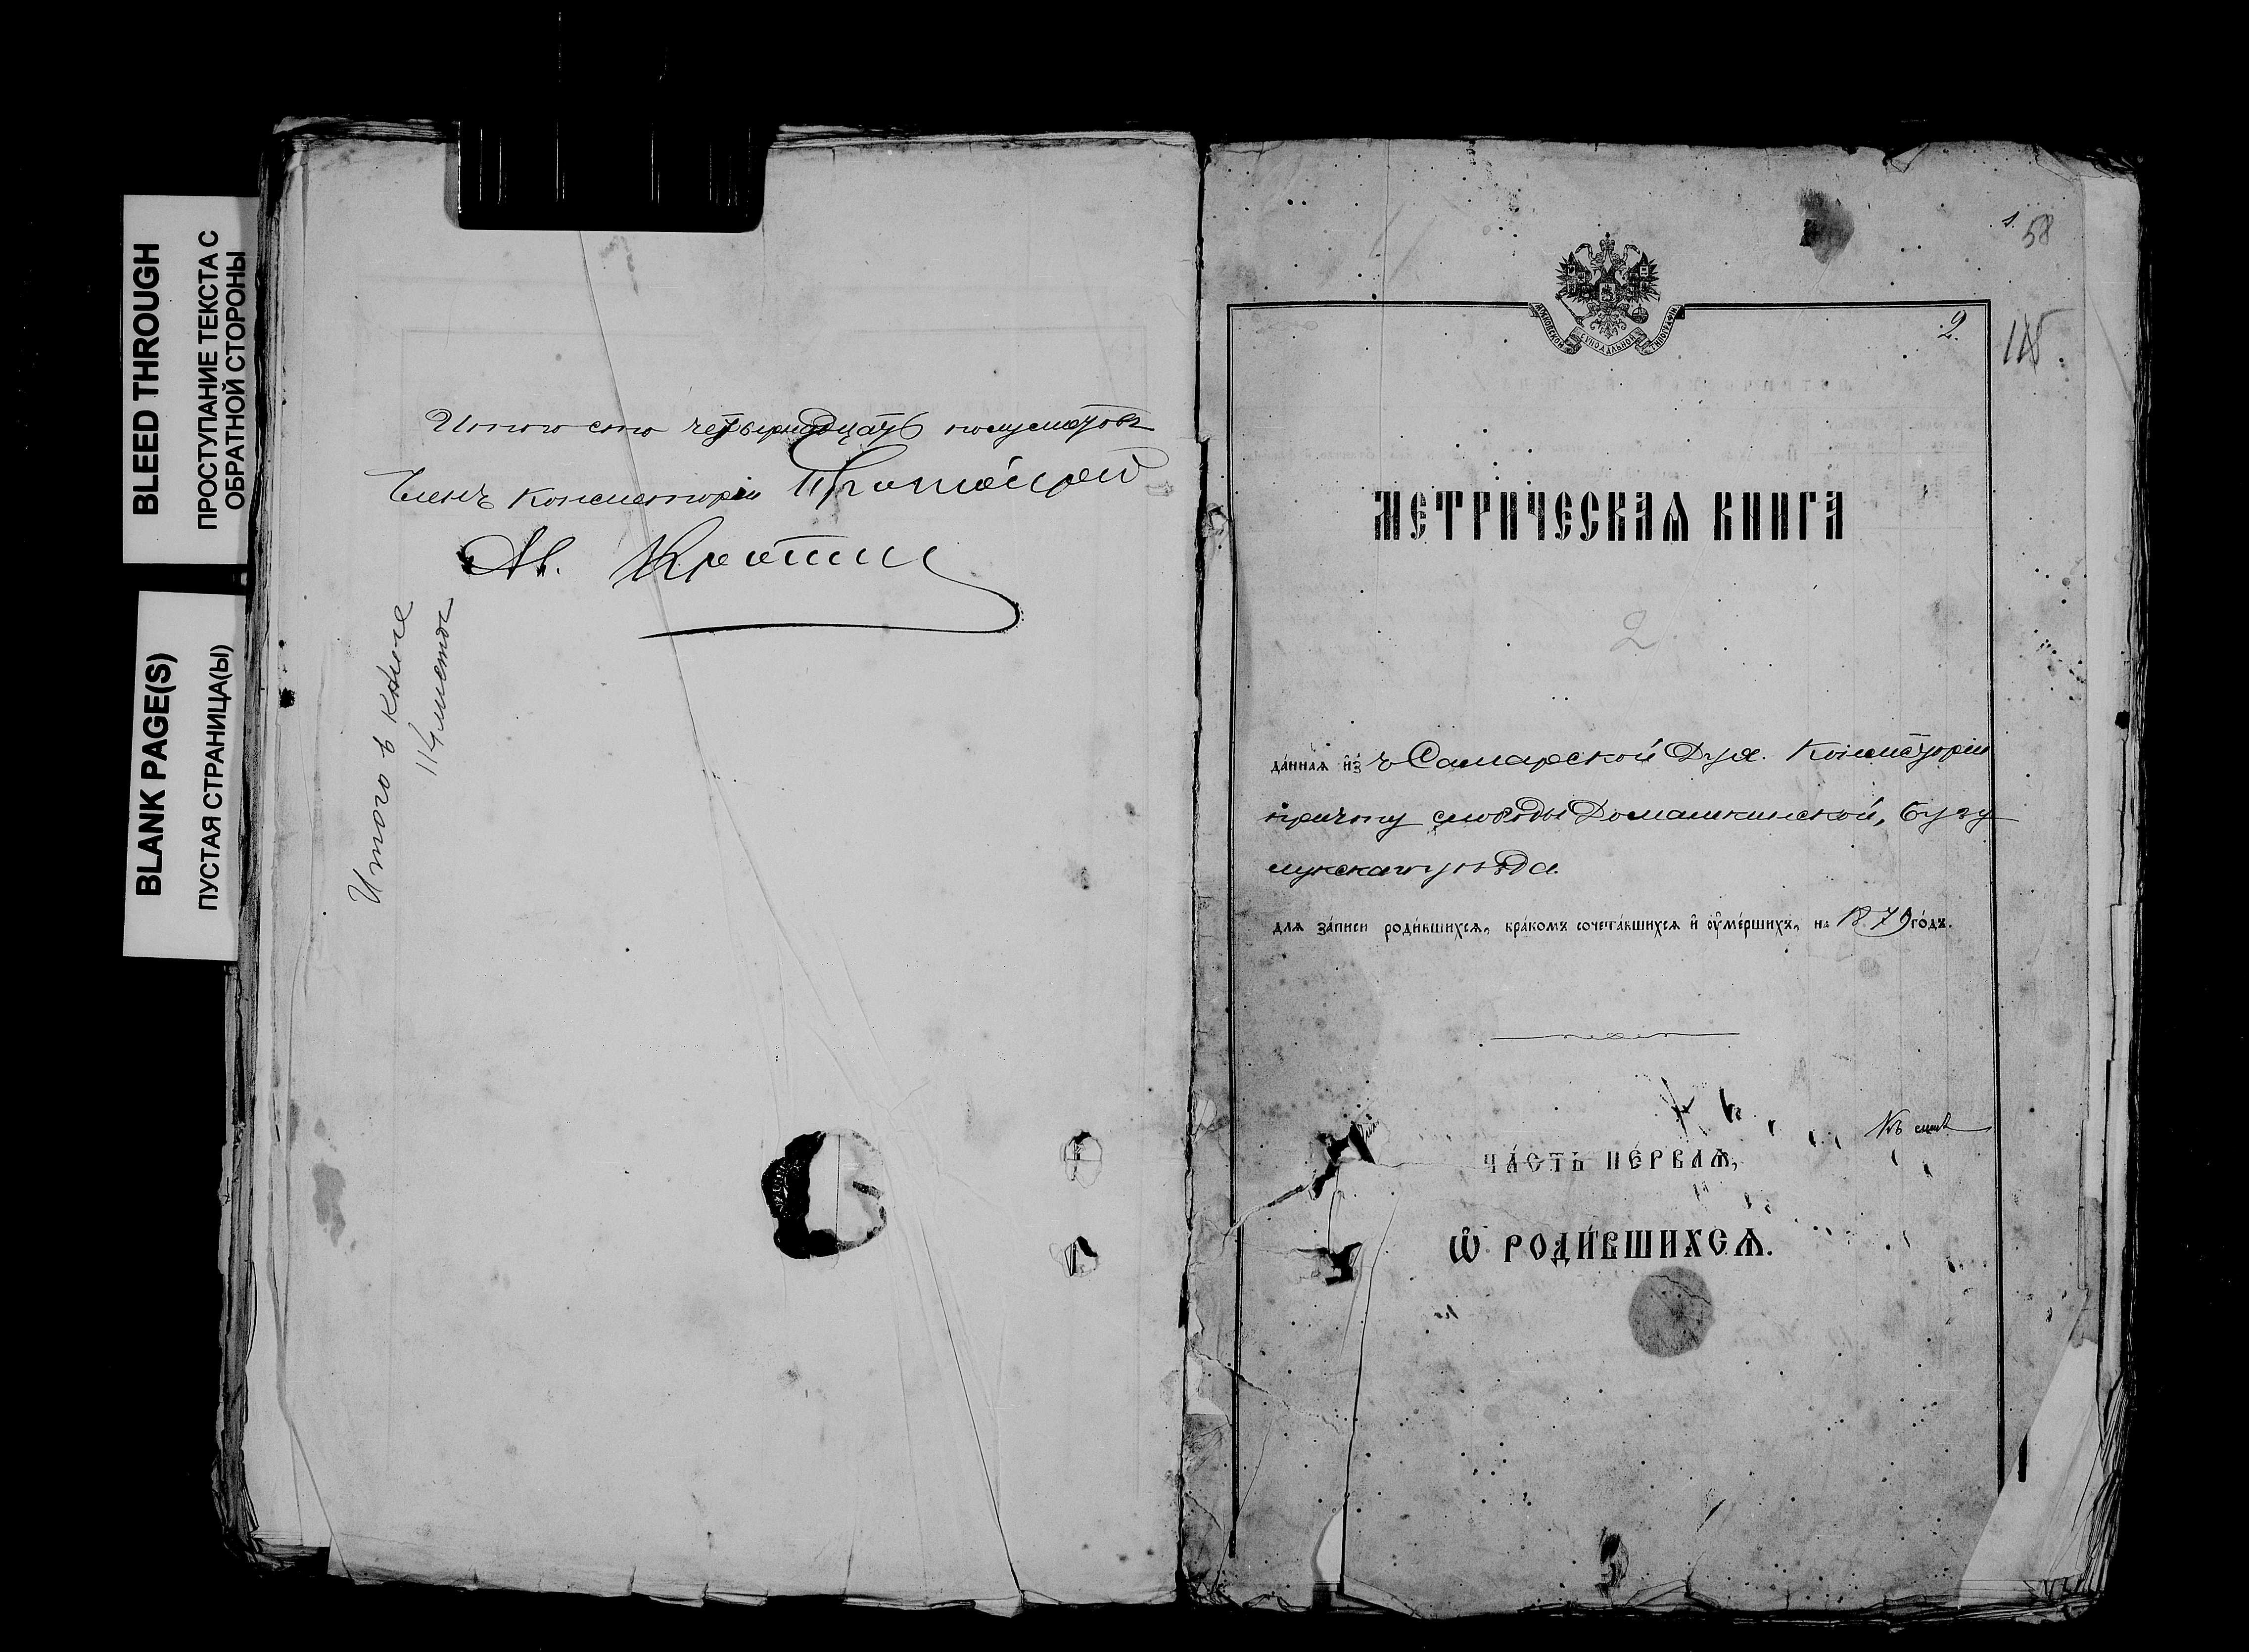 BLEED THROUGH
ПРОСТУПАНИЕ ТЕКСТА С
ОБРАТНОЙ СТОРОНЫ
BLANK PAGE(S)
ПУСТАЯ СТРАНИЦА(Ы)
Итого сто четырнадцать полулистовъ
Членъ Консисторіи Протоіерей
Ав. Кротки
Итого в книге
114 листов
58
МОСКОВСКОЙ СИНОДАЛЬНОЙ ТИПОГРАФІИ
2.
115
МЕТРИЧЕСКАѦ КНИГА
2
да́ннаѧ и҆з̾ Самарской Дух. Консисторіи
причту слободы Домашкинской, Бузу
лукскаго уѣзда.
длѧ за́писи роди́вшихсѧ, бра́комъ сочета́вшихсѧ и҆ ᲂу҆ме́ршихъ, на 1879 го́дъ.
Къ сей
ЧА́СТЬ ПЕ́РВАѦ,
Ѡ҆ РОДИ́ВШИХСѦ.